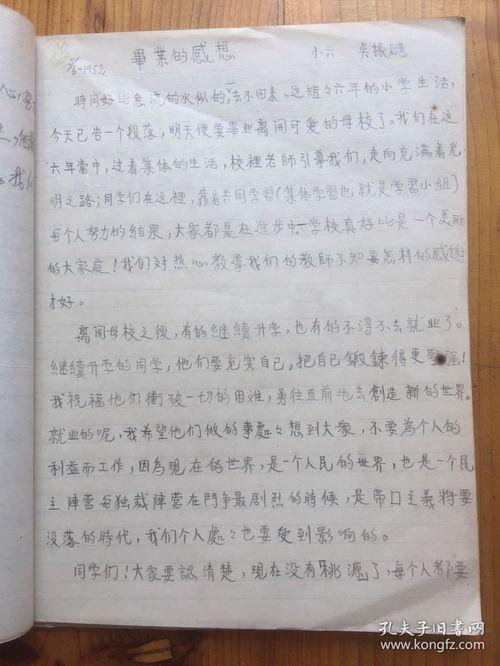 5/6-1952.
畢業的感想 小六 吳振
時間好比急流的水似的，一去不回来。这短々六年的小学生活，
今天已告一个段落，明天便要畢业离闲可爱的母校了。我们在这
六年當中，过着集体的生活，校裡老師引導我们，走向充滿着光
明之路；同学们在这裡，靠着共同学習（集体学習也就是学習小組）
每个人努力的結果，大家都是在進步中。学校真好比是一个美丽
的大家庭！我们对热心教導我们的教師不知要怎样的感謝
才好。
离闲母校之後，有的继續升学，也有的不得不去就业了。
继續升学的同学，他们要充实自己，把自己鍛鍊得更堅强！
我祝福他们衝破一切的困难，勇往直前地去創造新的世界。
就业的呢，我希望他们做的事處々想到大衆，不要為个人的
利益而工作，因為現在的世界，是一个人民的世界，也是一个民
主陣营与独裁陣营在鬥争最剧烈的時候，是帝口主義將要
没落的時代，我们个人處々也要受到影响的。
同学们！大家要認清楚，現在没有桃源了，每个人都要
心
孔夫子旧书网
www.kongfz.com